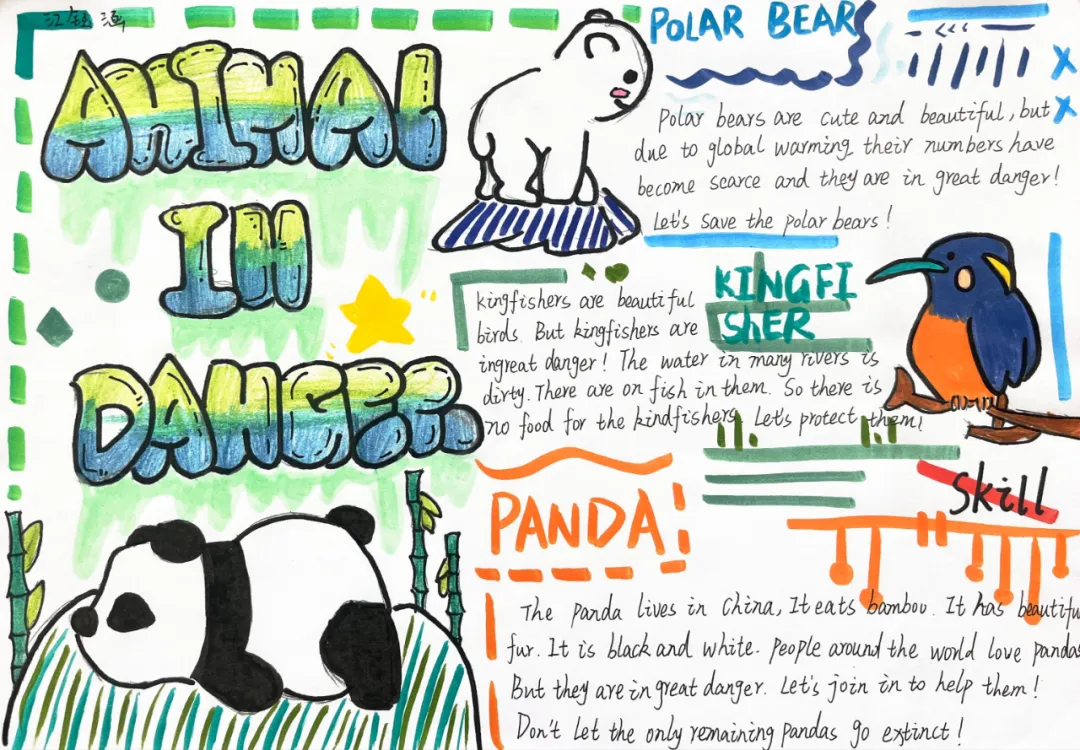 江钰涵
ANIMAL
IN
DANGER.
POLAR BEAR
Polar bears are cute and beautiful, but
due to global warming their numbers have
become scarce and they are in great danger!
Let's save the polar bears!
KINGFI
ShER
kingfishers are beautiful
birds. But kingfishers are
ingreat danger! The water in many rivers is
dirty. There are on fish in them. So there is
no food for the kindfishers. Let's protect them!
PANDA!
Skill
The panda lives in China, It eats bambou. It has beautiful
fur. It is black and white. people around the world love pandas
But they are in great danger. Let's join in to help them!
Don't let the only remaining pandas go extinct!